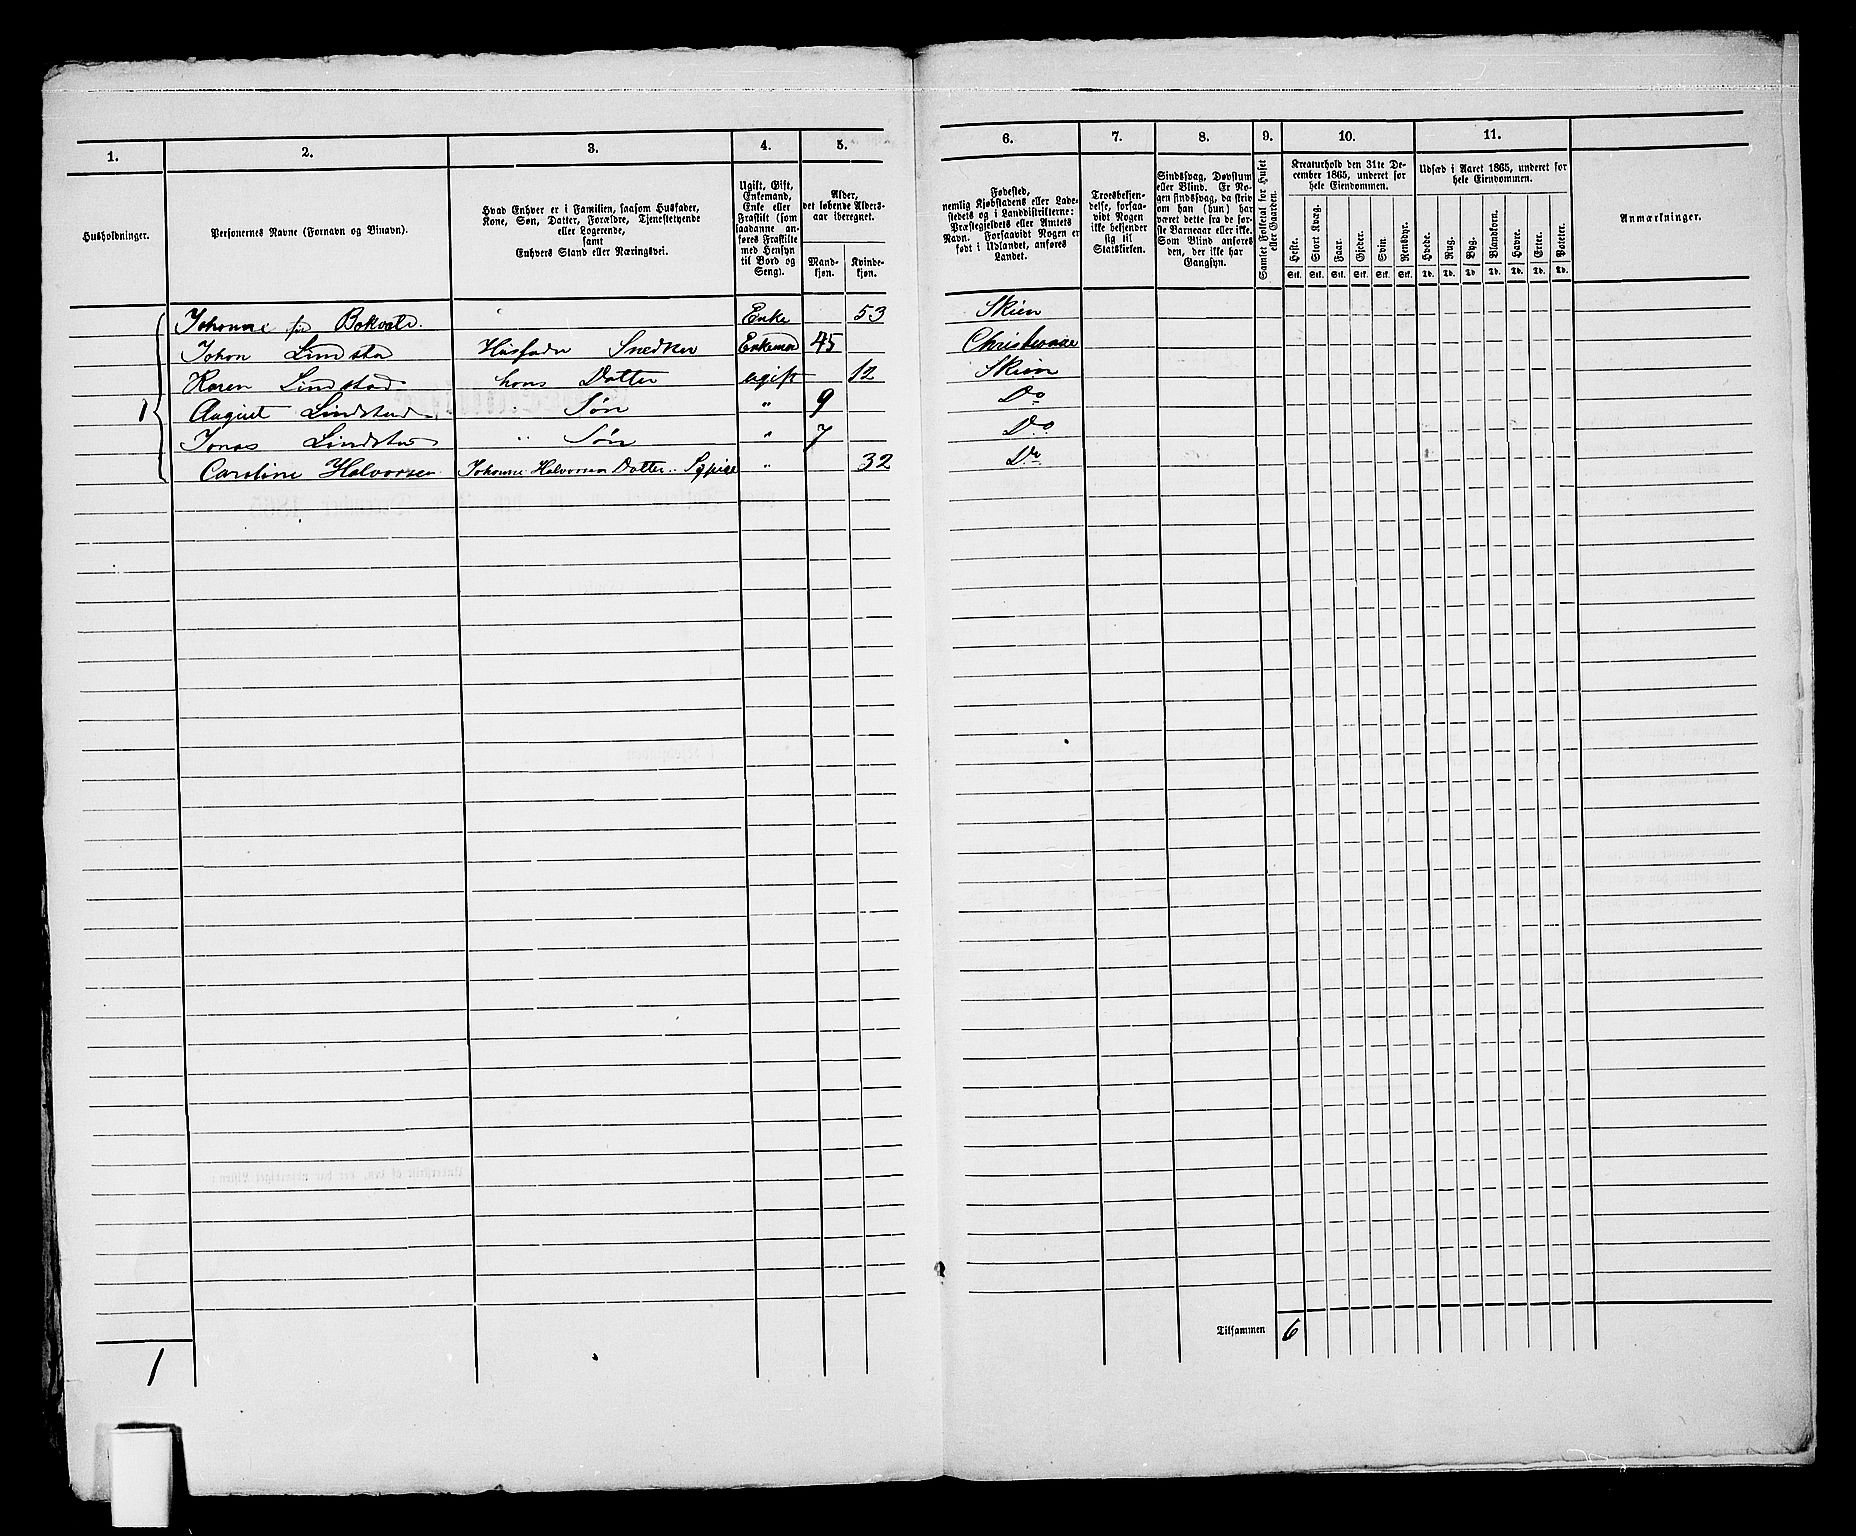 1. 2. 3. 4. 5. 6. 7. 8. 9. 10. 11.
Husholdninger.
Personernes Navne (Fornavn og Binavn).
Hvad Enhver er i Familien, saasom Husfader,
Kone, Søn, Datter, Forældre, Tjenestetyende
eller Logerende,
samt
Enhvers Stand eller Næringsvei.
Ugift, Gift,
Enkemand,
Enke eller
Fraskilt (som
saadanne an-
føres Fraskilte
med Hensyn
til Bord og
Seng).
Alder,
det løbende Alders-
aar iberegnet.
Mand-
kjøn.
Kvinde-
kjøn.
Fødested,
nemlig Kjøbstadens eller Lade-
stedets og i Landdistrikterne:
Præstegjeldets eller Amtets
Navn. Forsaavidt Nogen er
født i Udlandet, anføres
Landet.
Troesbekjen-
delse, forsaa-
vidt Nogen
ikke bekjender
sig til
Statskirken.
Sindssvag, Døvstum
eller Blind. Er No-
gen sindssvag, da skriv
om han (hun) har
været dette fra de før-
ste Barneaar eller ikke.
Som Blind anføres
den, der ikke har
Gangsyn.
Samlet Folketal for Huset
eller Gaarden.
Kreaturhold den 31te De-
cember 1865, underet for
hele Eiendommen.
Heste. Stort Kvæg. Faar. Gjeder. Svin. Rensdyr.
Stk. Stk. Stk. Stk. Stk. Stk.
Udsæd i Aaret 1865, underet for
hele Eiendommen.
Hvede. Rug. Byg. Blandkorn. Havre. Erter. Poteter.
Td. Td. Td. Td. Td. Td. Td.
Anmærkninger.
Johanne Enke 53 Skien
Johan Lindstad Husfader Snedker Enkemand 45
Karen Lindstad hans Datter ugift 12 Skien
1 August Lindstad " Søn " 9 Do
Jonas Lindstad " Søn " 7 Do
Caroline Halvorsen Johanne Halvorsen Datter " 32 Do
Tilsammen 6
1